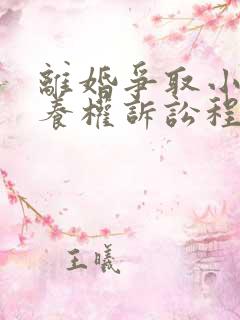 離婚爭取小
養權訴訟程
王曦